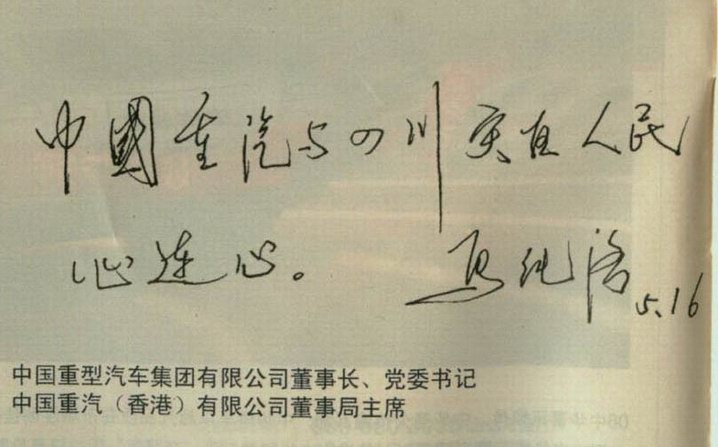 中國重汽与四川灾区人民
心连心。 马纯济 5.16
中国重型汽车集团有限公司董事长、党委书记
中国重汽（香港）有限公司董事局主席